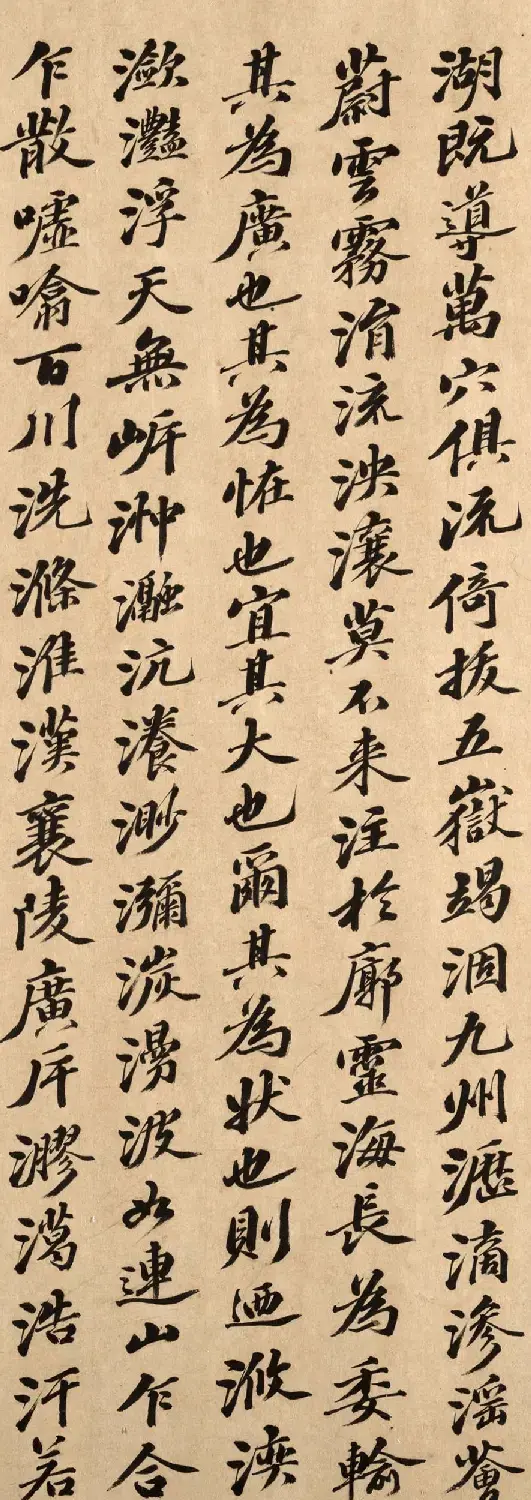 湖既導萬穴俱流倚拔五嶽竭涸九州瀝滴滲滛薈
蔚雲霧涓流泱瀼莫不来注於廓靈海長為委輸
其為廣也其為恠也宜其大也爾其為状也則迺浟湙
瀲灩浮天無岸浺瀜沆瀁渺瀰湠漫波如連山乍合
乍散嘘噏百川洗滌淮漢襄陵廣斥㵧㵿浩汗若